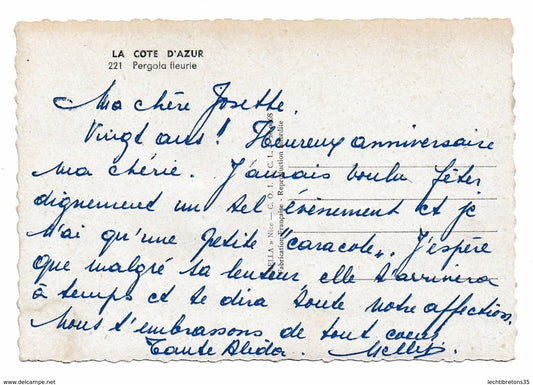 LA COTE D'AZUR
221 Pergola fleurie
Ma chère Josette.
Vingt ans ! Heureux anniversaire
ma chérie. J'aurais voulu fêter
dignement un tel évènement et je
n'ai qu'une petite "caracole". J'espère
que malgré sa lenteur elle t'arrivera
à temps et te dira toute notre affection.
Nous t'embrassons de tout coeur
Tante Alida.
Nice — C. O. I. C. L.
Fabrication Française - Reproduction interdite
www.delcampe.net
lechtibretons35